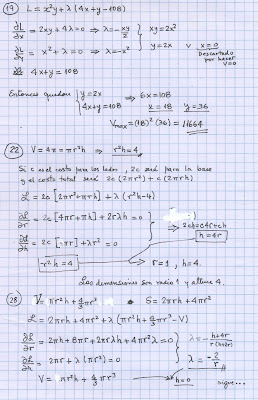 19) L = x²y + λ(4x+y-108)
∂L/∂x = 2xy + 4λ = 0 ⇒ λ = -xy/2
xy = 2x²
∂L/∂y = x² + λ = 0 ⇒ λ = -x²
y = 2x v x=0
Descartado por hacer V=0
4x+y = 108
Entonces quedan
y = 2x
4x+y = 108
⇒ 6x = 108
x = 18 y = 36
Vmax = (18)² (36) = 11664
22) V = 4π = πr²h ⇒ r²h = 4
Si c es el costo para los lados, 2c será para la base
y el costo total será 2c (2πr²) + c (2πrh)
L = 2c [2πr² + πrh] + λ (r²h-4)
= 2c [4πr + πh] + 2rλh = 0
h = 4r
= 2c [πr] + λr² = 0
r²h = 4
r = 1, h = 4.
Las dimensiones son radio 1 y altura 4.
28) V = πr²h + 4/3 πr³ • S = 2πrh + 4πr²
L = 2πrh + 4πr² + λ (πr²h + 4/3 πr³ - V)
∂L/∂r = 2πh + 8πr + 2πrλh + 4πr²λ = 0
λ = - (h+4r)/(r(h+2r))
∂L/∂h = 2πr + λ(πr²) = 0
λ = -2/r
V = πr²h + 4/3 πr³
h = 0
sigue...